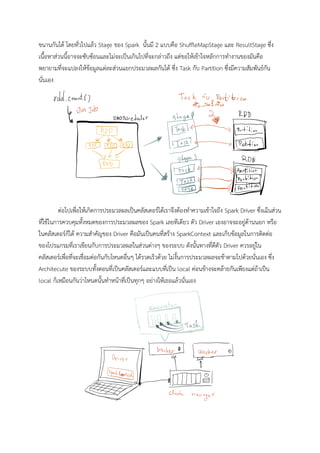 ขนานกันได้ โดยทั่วไปแล้ว Stage ของ Spark นั้นมี 2 แบบคือ ShuffleMapStage และ ResultStage ซึ่ง
เนื้อหาส่วนนี้อาจจะซับซ้อนและไม่จะเป็นเกินไปที่จะกล่าวถึง แต่ขอให้เข้าใจหลักการทำงานของมันคือ
พยายามที่จะแปลงให้ข้อมูลแต่ละส่วนแยกประมวลผลกันได้ ซึ่ง Task กับ Partition ซึ่งมีความสัมพันธ์กัน
นั่นเอง
rdd.count()
Run Job
DAGScheduler
RDD
RDD RDD RDD
RDD
Task กับ Partition
stage 1
Task 1
Task 2
RDD
Partition
Partition
stage 2
Task
Task
Task
RDD
Partition
Partition
Partition
ต่อไปเพื่อให้เกิดการประมวลผลเป็นคลัสเตอร์ได้เราจึงต้องทำความเข้าใจถึง Spark Driver ซึ่งเป็นส่วน
ที่ใช้ในการควบคุมทั้งหมดของการประมวลผลของ Spark เลยทีเดียว ตัว Driver เองอาจจะอยู่ด้านนอก หรือ
ในคลัสเตอร์ก็ได้ ความสำคัญของ Driver คือมันเป็นคนที่สร้าง SparkContext และเก็บข้อมูลในการติดต่อ
ของโปรแกรมที่เราเขียนกับการประมวลผลในส่วนต่างๆ ของระบบ ดังนั้นทางที่ดีตัว Driver ควรอยู่ใน
คลัสเตอร์เพื่อที่จะเชื่อมต่อกันกับโหนดอื่นๆ ได้รวดเร็วด้วย ไม่งั้นการประมวลผลจะช้าตามไปด้วยนั่นเอง ซึ่ง
Architecute ของระบบทั้งตอนที่เป็นคลัสเตอร์และแบบที่เป็น local ค่อนข้างจะคล้ายกันเพียงแต่ถ้าเป็น
local ก็เหมือนกับว่าโหนดนั้นทำหน้าที่เป็นทุกๆ อย่างให้เธอแล้วนั่นเอง
Executor
Task
Worker
Worker
Driver
Spark Context
Cluster manager